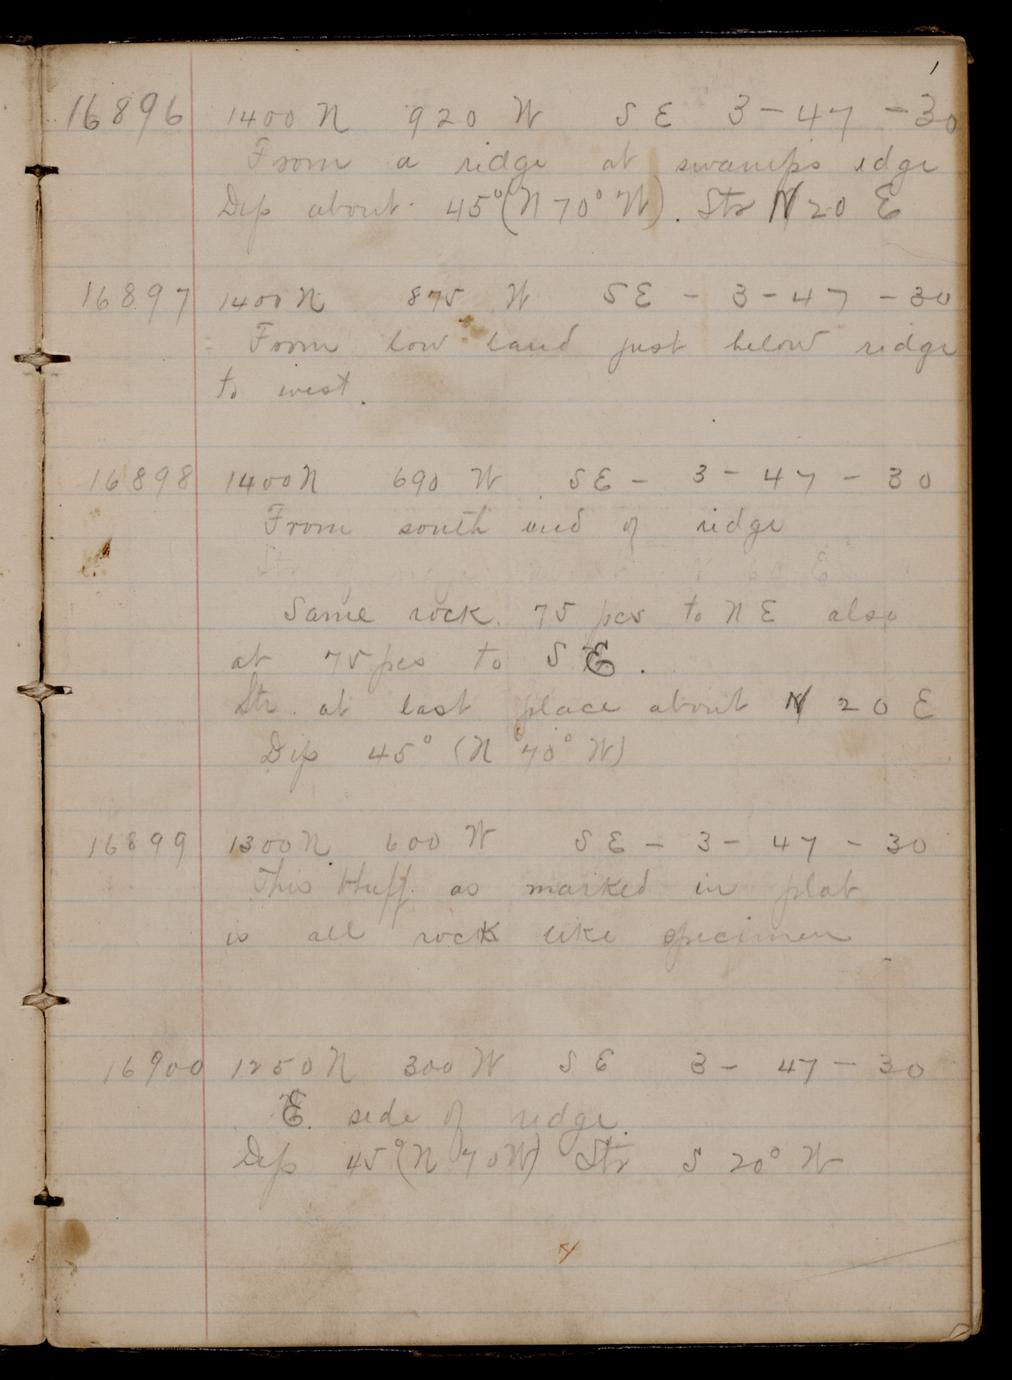 1
16896 1400 N 920 W S E 3 - 47 - 30
From a ridge at swamps edge
Dip about 45° (N 70° W). Str N 20 E
16897 1400 N 875 W S E - 3 - 47 - 30
From low land just below ridge
to west.
16898 1400 N 690 W S E - 3 - 47 - 30
From south end of ridge
Same rock. 75 pcs to N E also
at 75 pcs to S E.
Str. at last place about N 20 E
Dip 45° (N 70° W)
16899 1300 N 600 W S E - 3 - 47 - 30
This bluff as marked in plat
is all rock like specimen
16900 1250 N 300 W S E 3 - 47 - 30
E. side of ridge.
Dip 45° (N 70 W) Str S 20° W